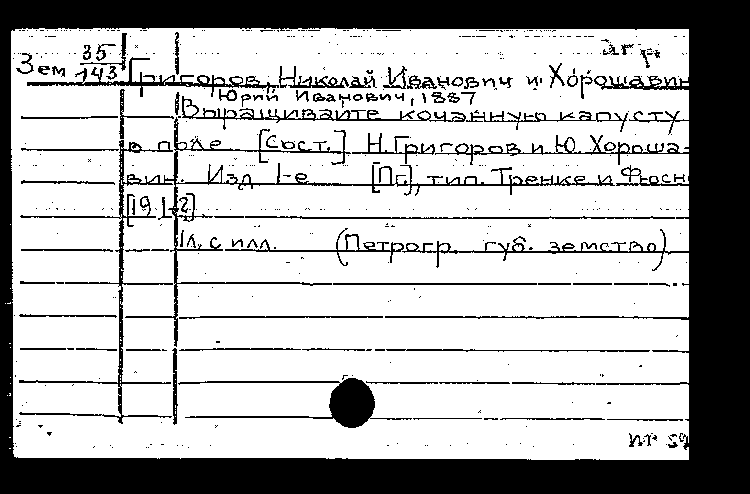 Зем 35/143 Григоров, Николай Иванович и Хорошавин
Юрий Иванович, 1887
Выращивайте кочанную капусту
в поле [Сост.] Н. Григоров и Ю. Хороша-
вин. Изд 1-е [Пг.], тип. Тренке и Фюсн
1л, с илл. (Петрогр. губ. земство)